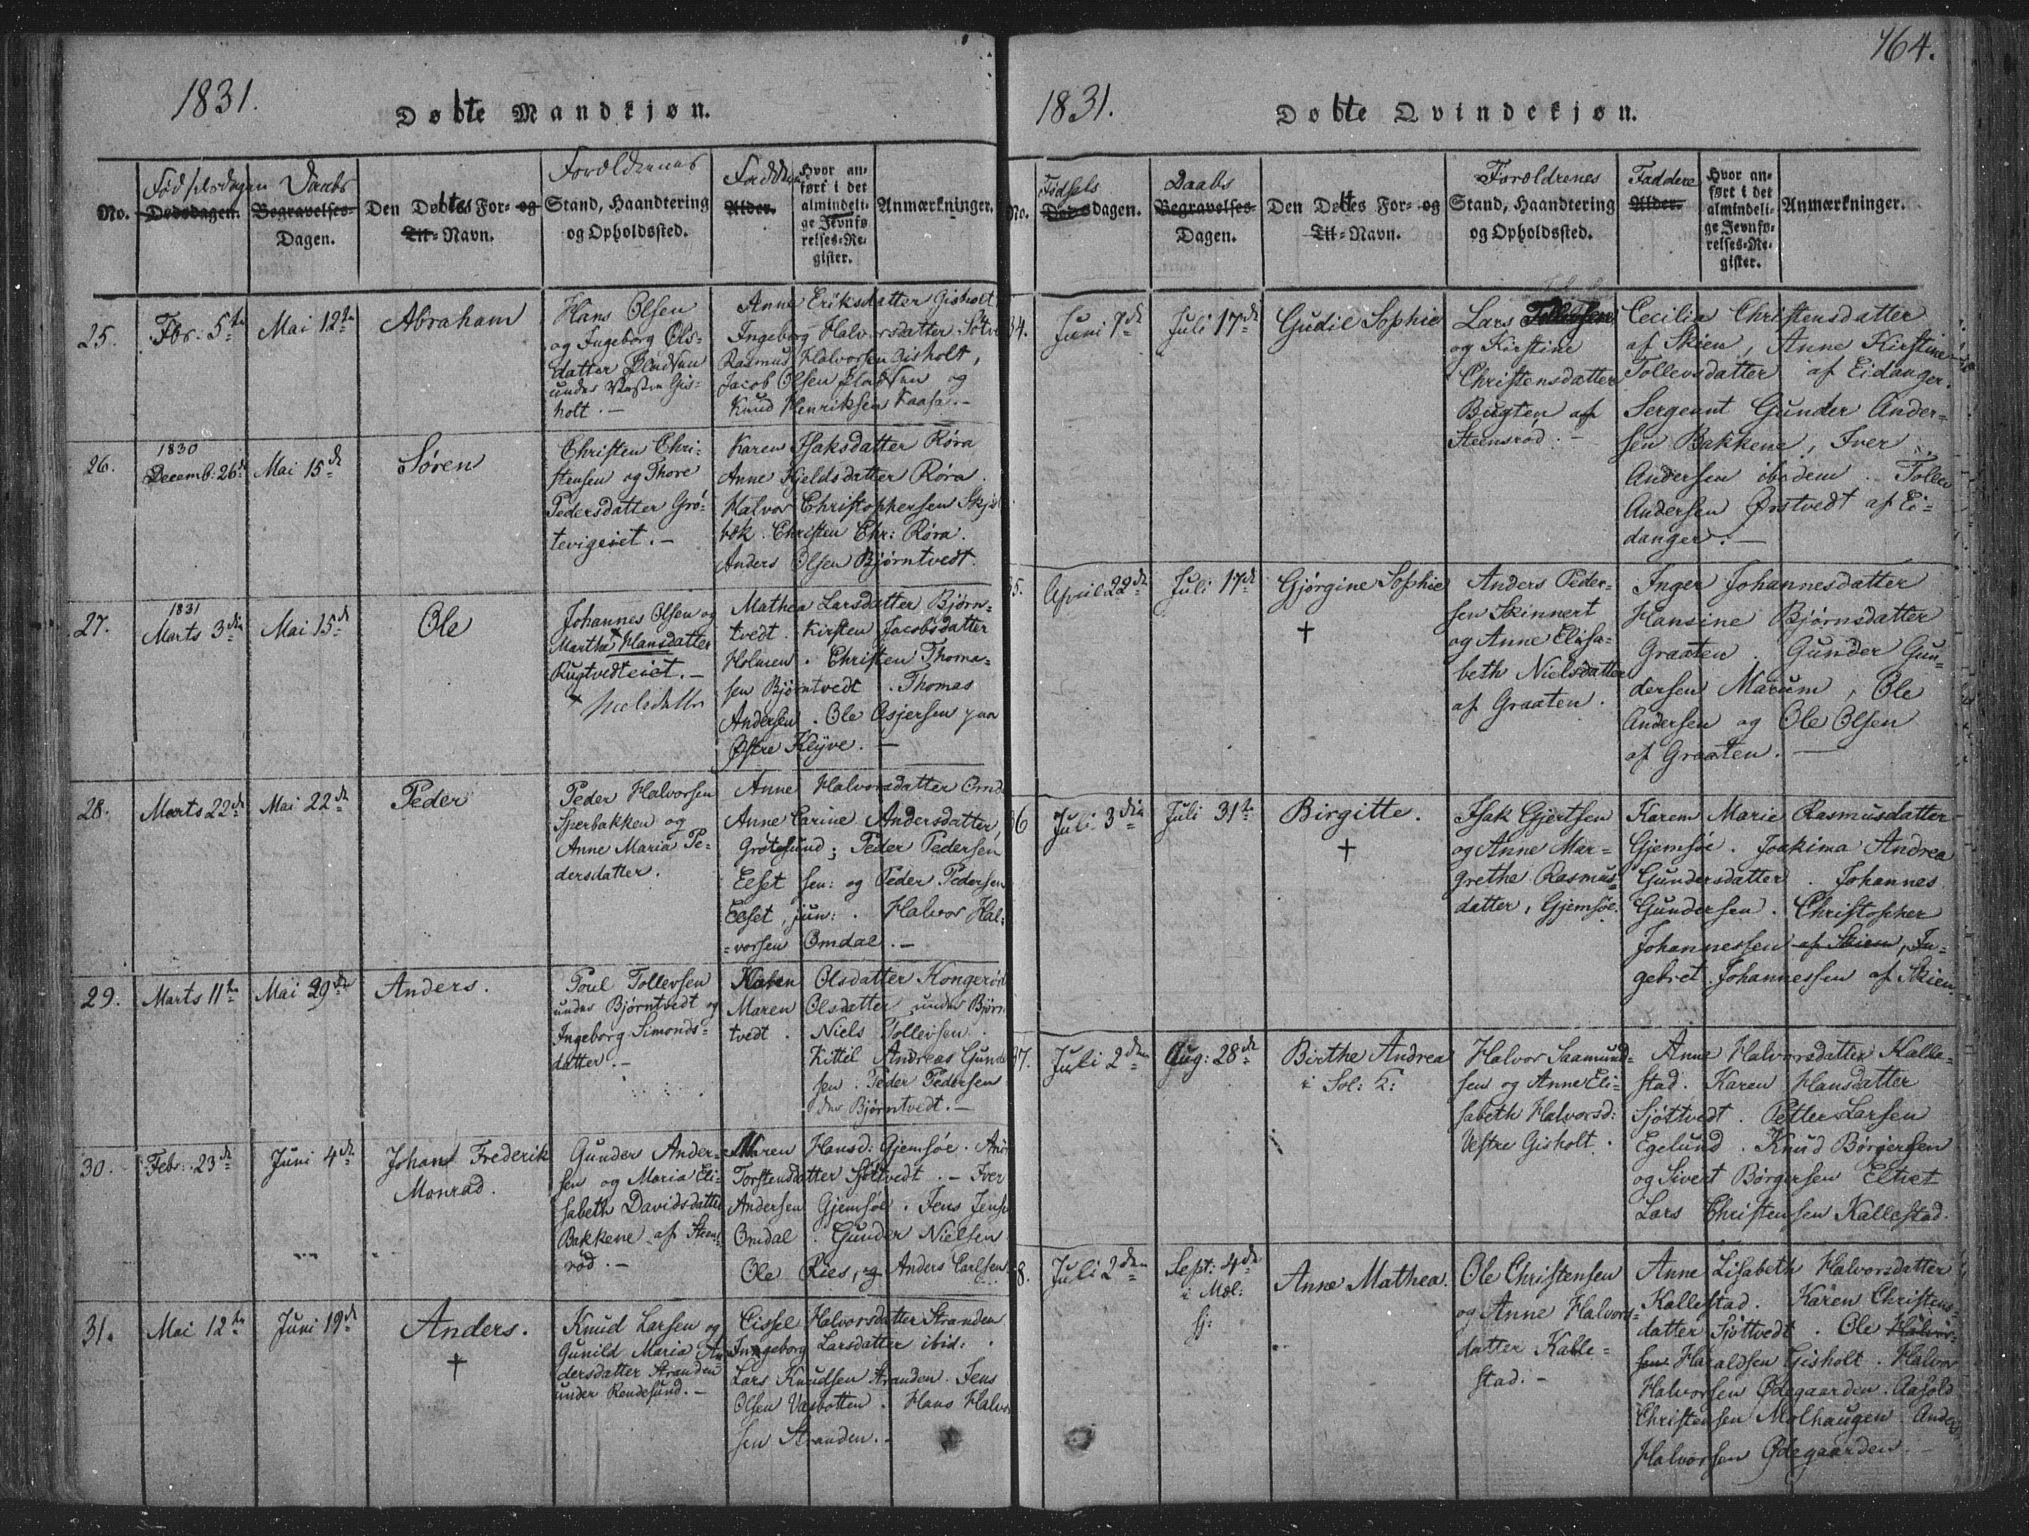 1831.
Døbte Mandkjøn.
Fødselsdagen
Daabs
Forældrenes
Faddere
No.
Dødsdagen.
Begravelses-
Dagen.
Den Døbtes For- og
Til-Navn.
Stand, Haandtering
og Opholdssted.
Alder.
Hvor an-
ført i det
almindeli-
ge Jevnfø-
relses-Re-
gister.
Anmærkninger.
25.
Fbr. 5te
Mai 12te
Abraham
Hans Olsen
og Ingeborg Ols-
datter Pladsen
under Vestre Gis-
holt. —
Anne Eriksdatter Gisholt
Ingeborg Halvorsdatter
Rasmus Halvorsen Gisholt,
Jacob Olsen Pladsen og
Knud Henriksen Kaasa. —
26.
1830
Decemb: 26de
Mai 15de
Søren
Christen Chri-
stensen og Thore
Pedersdatter Grø-
tevigeiet. —
Karen Isaksdatter Røra
Anne Kjeldsdatter Røra.
Halvor Christophersen Skjel
bek. Christen Chr: Røra.
Anders Olsen Bjørntvedt.
27.
1831
Marts 3die
Mai 15de
Ole
Johannes Olsen og
Martha Hansdatter
Rugtvedteiet. —
+ Nielsdatter
Mathea Larsdatter Bjørn-
tvedt. Kirsten Jacobsdatter
Holmen. Christen Thoma-
sen Bjørntvedt. Thomas
Andersen. Ole Asjersen paa
Østre Kleyve. —
28.
Marts 22de
Mai 22de
Peder
Peder Halvorsen
Sperbakken og
Anne Maria Pe-
dersdatter.
Anne Halvorsdatter Omd
Anne Carine Andersdatter,
Grøtesund; Peder Pedersen
Elset sen: og Peder Pedersen
Elset, jun:. Halvor Hal-
vorsen Omdal. —
29.
Marts 11te
Mai 29de
Anders.
Poul Tollevsen
under Bjørntvedt og
Ingeborg Simonds-
datter. —
Karen Olsdatter Kongerød
Maren Olsdatter under Bjørn
tvedt. Niels Tollevsen.
Kittil Andreas Gunde
sen. Peder Pedersen
Bjørntvedt. —
30.
Febr: 23de
Juni 4de
Johan Frederik
Monrad.
Gunder Ander-
sen og Maria Eli-
sabeth Davidsdatter
Bakkene af Steens-
rød. —
Maren Hansd: Gjemsøe.
Torstensdatter Sjøtvedt. — Iver
Andersen Gjemsøe. Jens Jense
Omdal. Gunder Nielsen
Ole Ries, og Anders Carlsen
31.
Mai 12te
Juni 19de
Anders.
†
Knud Larsen og
Gunild Maria An
dersdatter Stranden
under Rendesund. —
Cissel Halvorsdatter Stranden
Ingeborg Larsdatter ibid:
Lars Knudsen Stranden. Jens
Olsen Vasbotten. Hans Halvor
sen Stranden. —
1831.
Døbte Qvindekjøn.
164.
Fødsels
Daabs
Forældrenes
Faddere
No.
Dødsdagen.
Begravelses-
Dagen.
Den Døbtes For- og
Til-Navn.
Stand, Haandtering
og Opholdssted.
Alder.
Hvor an-
ført i det
almindeli-
ge Jevnfø-
relses-Re-
gister.
Anmærkninger.
34.
Juni 7de
Juli 17de
Gudil Sophie
Lars
og Kirstine
Christensdatter
Bugten af
Steensrød. —
Cecilia Christensdatter
af Skien, Anne Kirstine
Tollevsdatter af Eidanger.
Sergeant Gunder Ander-
sen Bakkene, Iver
Andersen ibidem. Tollev
Andersen Ørstvedt af Ei-
danger. —
35.
April 22de
Juli 17de
Gjørgine Sophie
†
Anders Peder-
sen Skinnert
og Anne Elisa-
beth Nielsdatter
af Graaten.
Inger Johannesdatter
Hansine Bjørnsdatter
Graaten. Gunder Gun-
dersen Marum, Ole
Andersen og Ole Olsen
af Graaten. —
36
Juli 3die
Juli 31te
Birgitte.
†
Isak Gjertsen
og Anne Mar-
grethe Rasmus-
datter, Gjemsøe.
Karen Marie Rasmusdatter
Gjemsøe. Joakima Andrea
Gundersdatter. Johannes
Gundersen. Christopher
Johannessen af Skien, In-
gebret Johannessen af Skien.
37.
Juli 2den
Aug: 28de
Birthe Andrea
i Sol: K:
Halvor Saamund-
sen og Anne Eli-
sabeth Halvorsd:
Vestre Gisholt.
Anne Halvorsdatter Kalle-
stad. Karen Hansdatter
Sjøttvedt. Petter Larsen
Egelund. Knud Børgersen
og Sivert Børgersen Elset
Lars Christensen Kallestad.
38.
Juli 2den
Sept: 4de
i Mæl:
Anne Mathea.
Ole Christensen
og Anne Halvors-
datter Kalle-
stad. —
Anne Lisabeth Halvorsdatter
Kallestad. Karen Christens-
datter Sjøttvedt. Ole Halvor-
sen Haraldsen Gisholt. Halvor
Halvorsen Ødegaarden. Aasold
Christensen Molhaugen. Anders
Halvorsen Ødegaarden. —